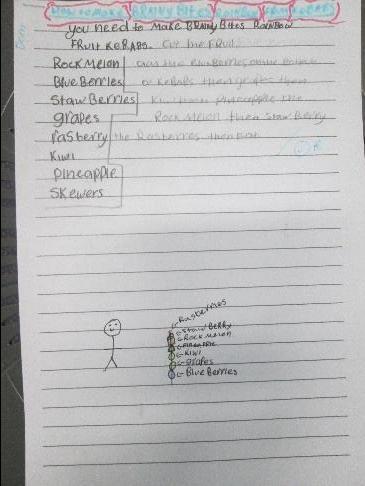 How to Make BRAINY BITES RAINBOW FRUIT KEBABS
you need to Make BRAINY BITES RAINBOW
FRUIT KEBABS. Cut the FRUIT
ROCK MELON and the BlueBerries on the Bottom
BlueBerries of KeBABS then grapes then
StawBerries Kiwi then pineapple the
grapes Rock Melon then StawBerry
rasberry the Rasberries then Eat
Kiwi
Pineapple
Skewers
Rasberries
StawBeRRy
ROCK MELON
PINEAPPLE
KIWI
grapes
BlueBerries